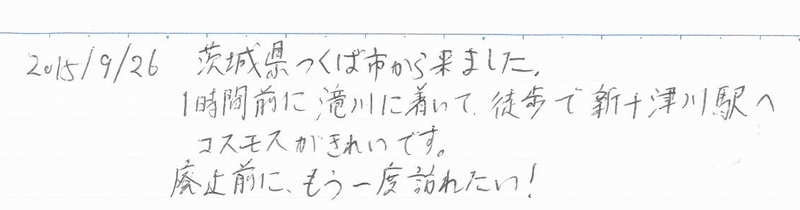 2015/9/26 茨城県つくば市から来ました。
1時間前に滝川に着いて、徒歩で新十津川駅へ
コスモスがきれいです。
廃止前に、もう一度訪れたい!